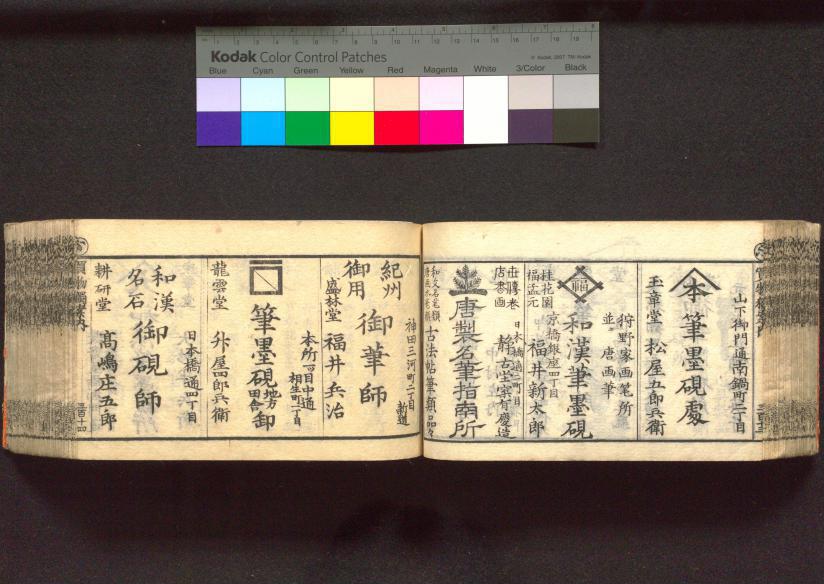 Kodak Color Control Patches
© Kodak, 2007 TM: Kodak
Blue Cyan Green Yellow Red Magenta White 3/Color Black
山下御門通南鍋町二丁目
本 筆墨硯處
狩野家画笔所
並ニ唐画筆
玉章堂 松屋五郎兵衛
福 和漢筆墨硯
京橋銀座四丁目
桂花園
福孟元
福井新太郎
日本橋通一町目
店書画
静古堂宗有慶造
唐製名筆指南所
古法帖筆類品々
神田三河町二丁目
新道
紀州
御用
御筆師
盛林堂 福井兵治
本所一ツ目中通
相生町二丁目
筆墨硯地方田舎卸
日本橋通四丁目
龍雲堂 舛屋四郎兵衛
和漢
名石
御硯師
耕研堂 高嶋庄五郎
三百十四